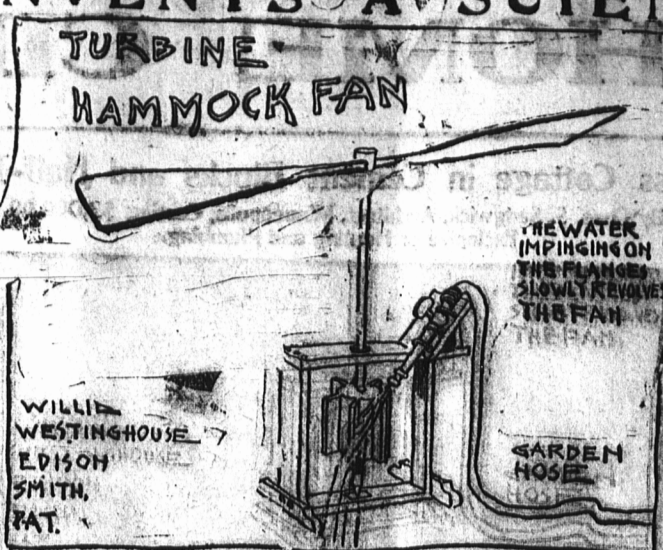 TURBINE
HAMMOCK FAN
THE WATER
IMPINGING ON
THE FLANGES
SLOWLY REVOLVES
THE FAN
WILLIE
WESTINGHOUSE
EDISON
SMITH.
PAT.
GARDEN
HOSE